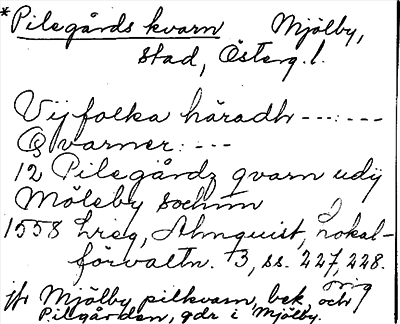 *Pilegårds kvarn Mjölby,
stad, Österg. l.
Vijfolka häradh ---:---
Qvarner: ---
12 Pilegårdz qvarn udij
Möleby sochnn
1558 Lreg, Almquist, Lokal-
förvaltn. 3, ss. 227, 228.
jfr Mjölby pilkvarn, bek, och
Pilgården, gdr i Mjölby.